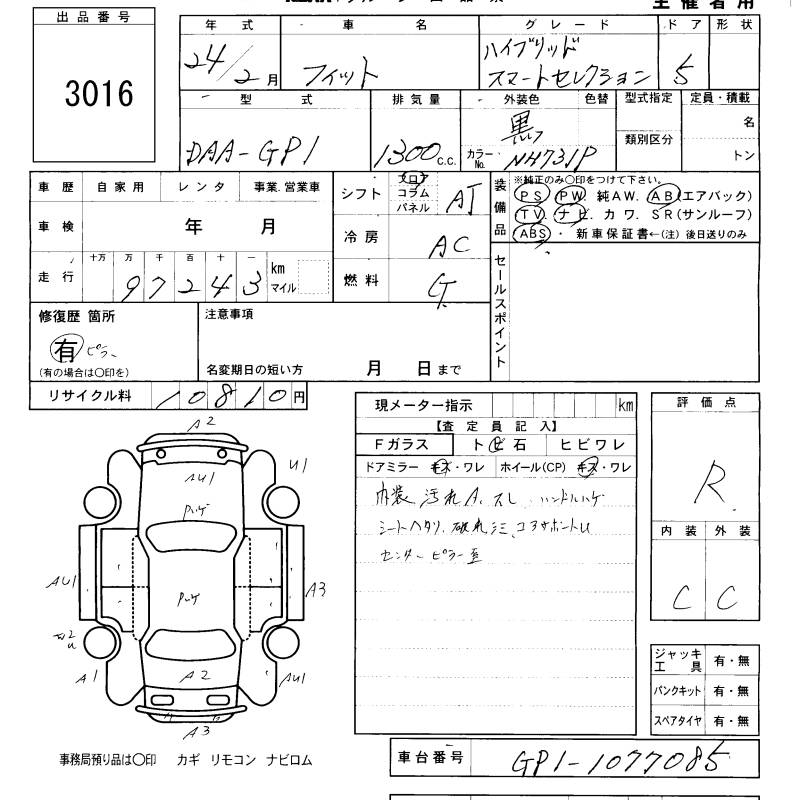 主催者用
出品番号
3016
年式 車名 グレード ドア 形状
24/2月 フィット ハイブリッド スマートセレクション 5
型式 排気量 外装色 色替 型式指定 定員・積載
DAA-GP1 1300c.c. 黒 カラーNo. NH731P 類別区分 名 トン
車歴 自家用 レンタ 事業.営業車
車検 年 月
走行 十万 万 千 百 十 一 km マイル
97243
シフト フロア コラム パネル AT
冷房 AC
燃料 G
装備品 ※純正のみ○印をつけて下さい。
PS PW. 純AW. AB(エアバック)
TV ナビ. カワ. SR(サンルーフ)
ABS ・ 新車保証書←(注) 後日送りのみ
セールスポイント
修復歴 箇所
有 ピラー
(有の場合は○印を)
注意事項
名変期日の短い方 月 日まで
リサイクル料 10810円
現メーター指示 km
【査定員記入】
Fガラス トビ石 ヒビワレ
ドアミラー キズ・ワレ ホイール(CP) キズ・ワレ
内装 汚れA、スレ、ハンドルハゲ
シートヘタリ、破れ
センターピラー
評価点
R
内装 外装
C C
ジャッキ 工具 有・無
パンクキット 有・無
スペアタイヤ 有・無
A2
AU1
U1
ハゲ
AU1
A3
ハゲ
A1
A2
AU1
A3
事務局預り品は○印 カギ リモコン ナビロム
車台番号 GP1-1077085